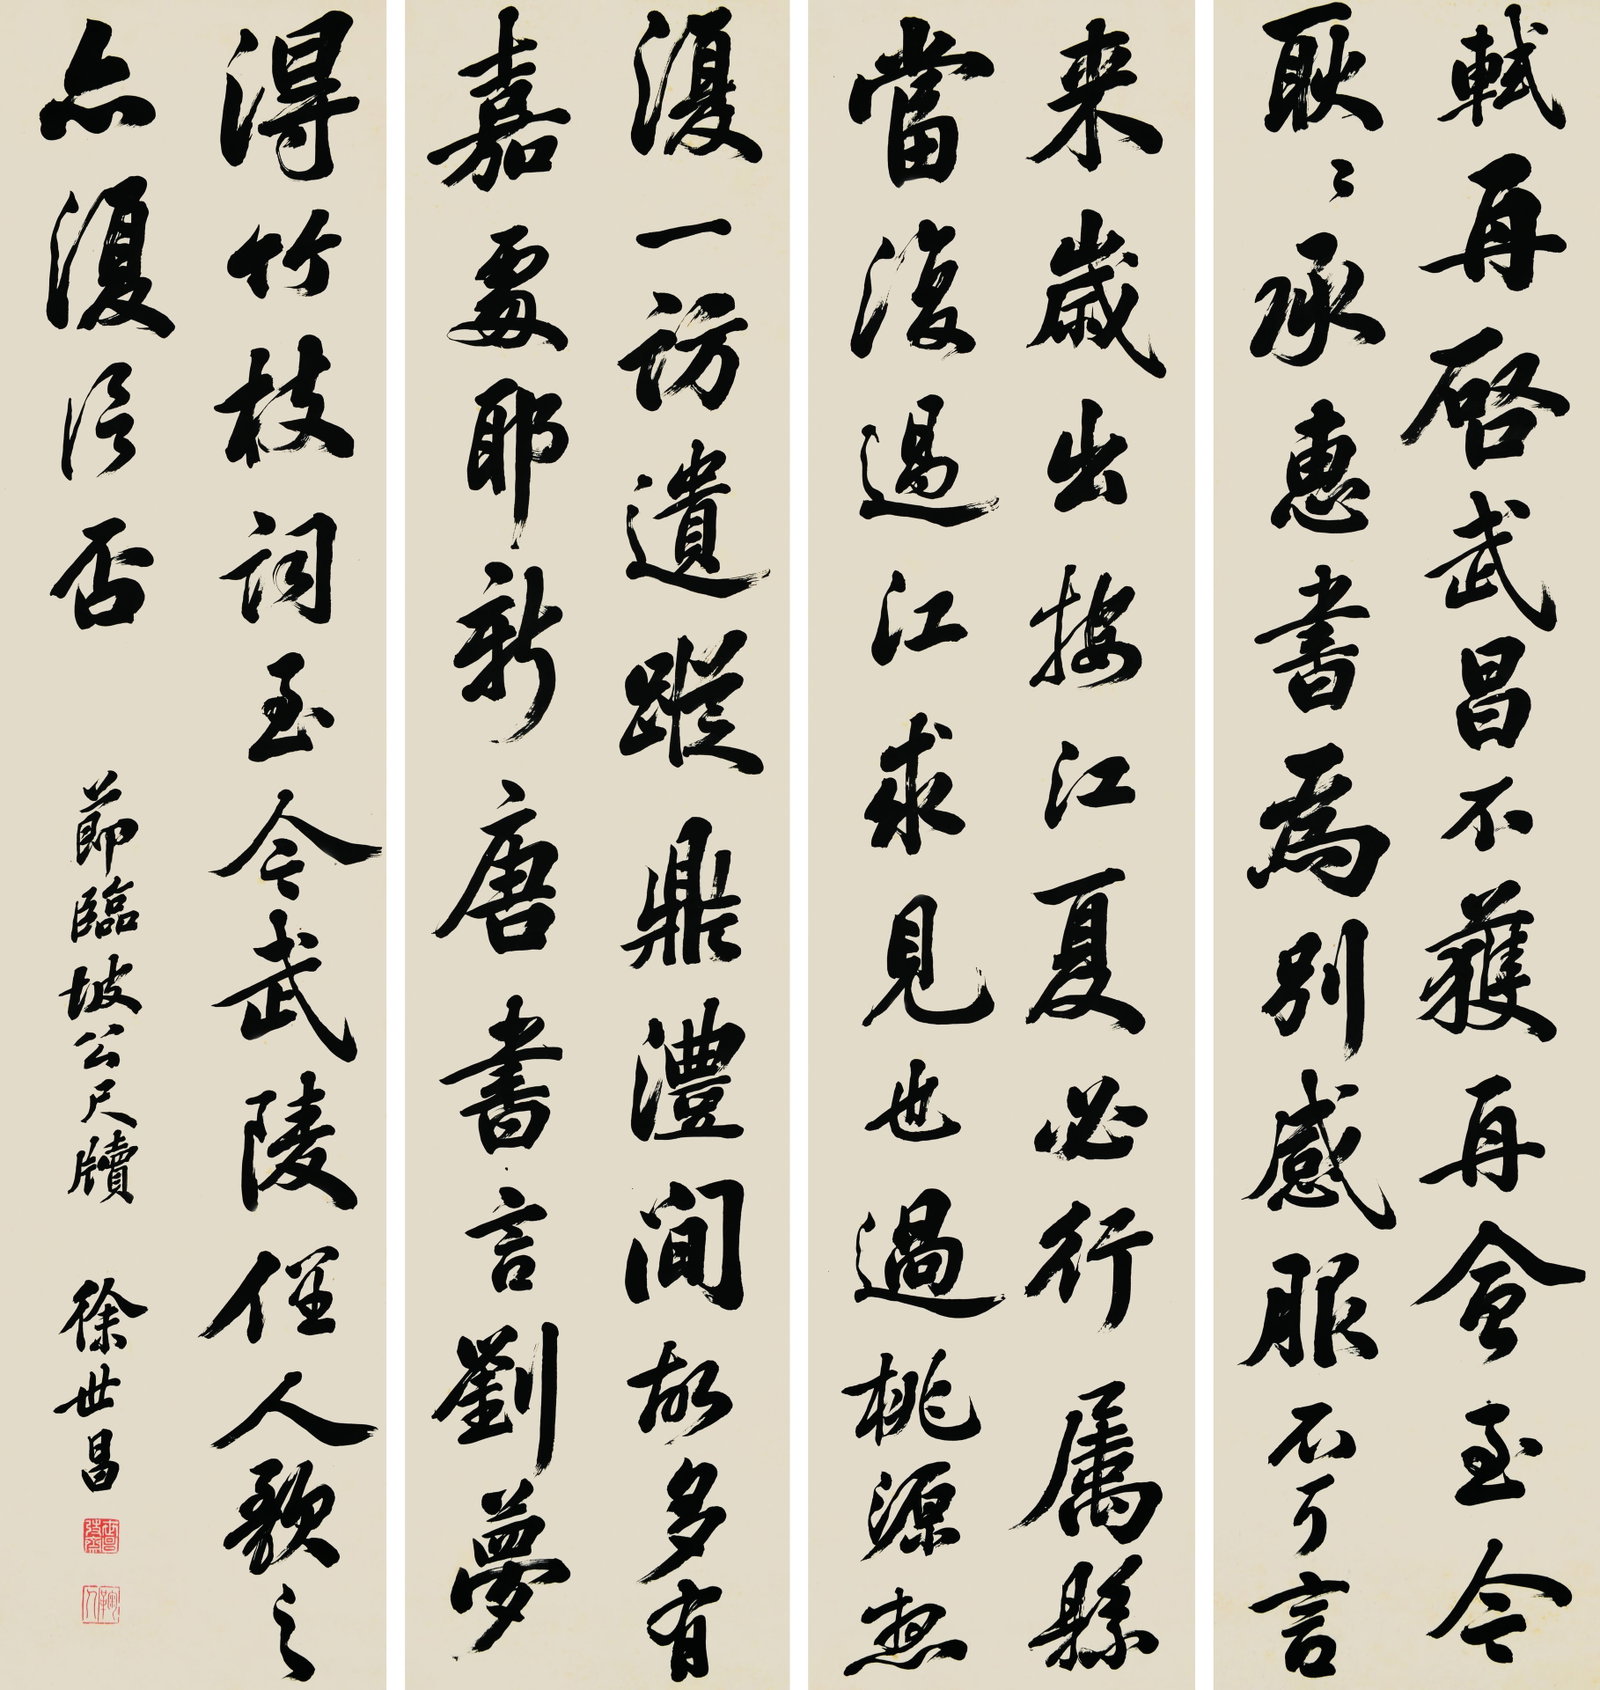 軾再啓武昌不獲再會至今
耿〻承惠書爲別感服不可言
来歲出按江夏必行屬縣
當復過江求見也過桃源想
復一訪遺蹤鼎澧間故多有
嘉處耶新唐書言劉夢
得竹枝詞至今武陵俚人歌之
亦復信否
節臨坡公尺牘
徐世昌